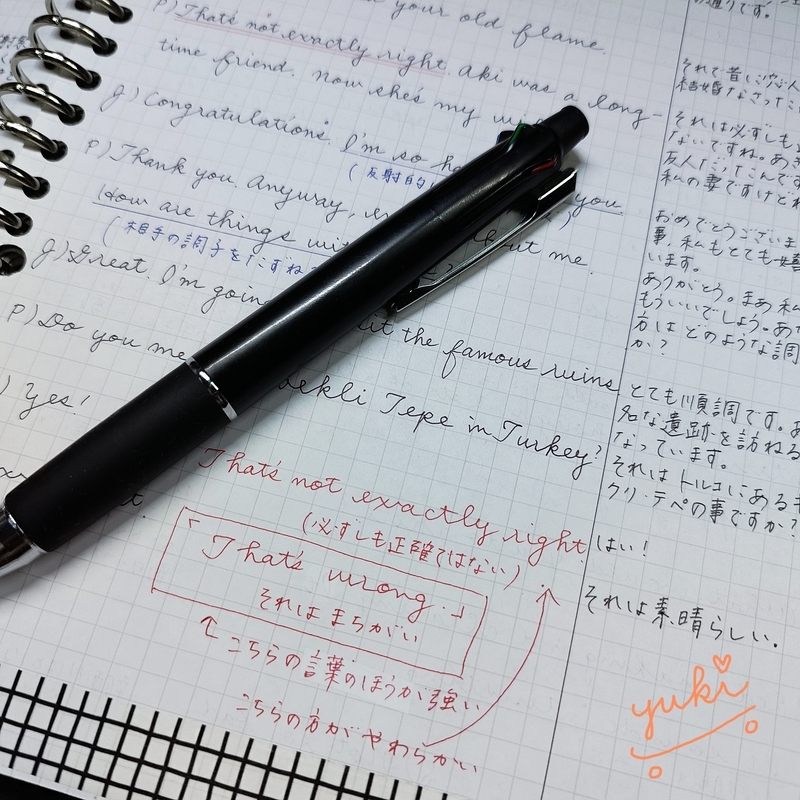 your old flame.
P) That's not exactly right. Aki was a long-
time friend. Now she's my
J) Congratulations. I'm so
you.
(反射的
P) Thank you. Anyway,
me.
How are things
(相手の調子をたずね
J) Great. I'm going
the famous ruins
P) Do you me
Tepe in Turkey?
) Yes!
That's not exactly right.
(必ずしも正確ではない)
「That's wrong.」
それはまちがい
↑こちらの言葉のほうが強い
こちらの方がやわらかい
それで昔
結婚なさったこ
それは必ずしも
ないですね。あき
友人だったんです
私の妻ですけどね
おめでとうございま
事、私もとても
います。
ありがとう。まあ私
もういいでしょう。あな
方はどのような調
か?
とても順調です。
名な遺跡を訪ねる
なっています。
それはトルコにある
クリ・テペの事ですか?
はい!
それは素晴らしい。
yuki